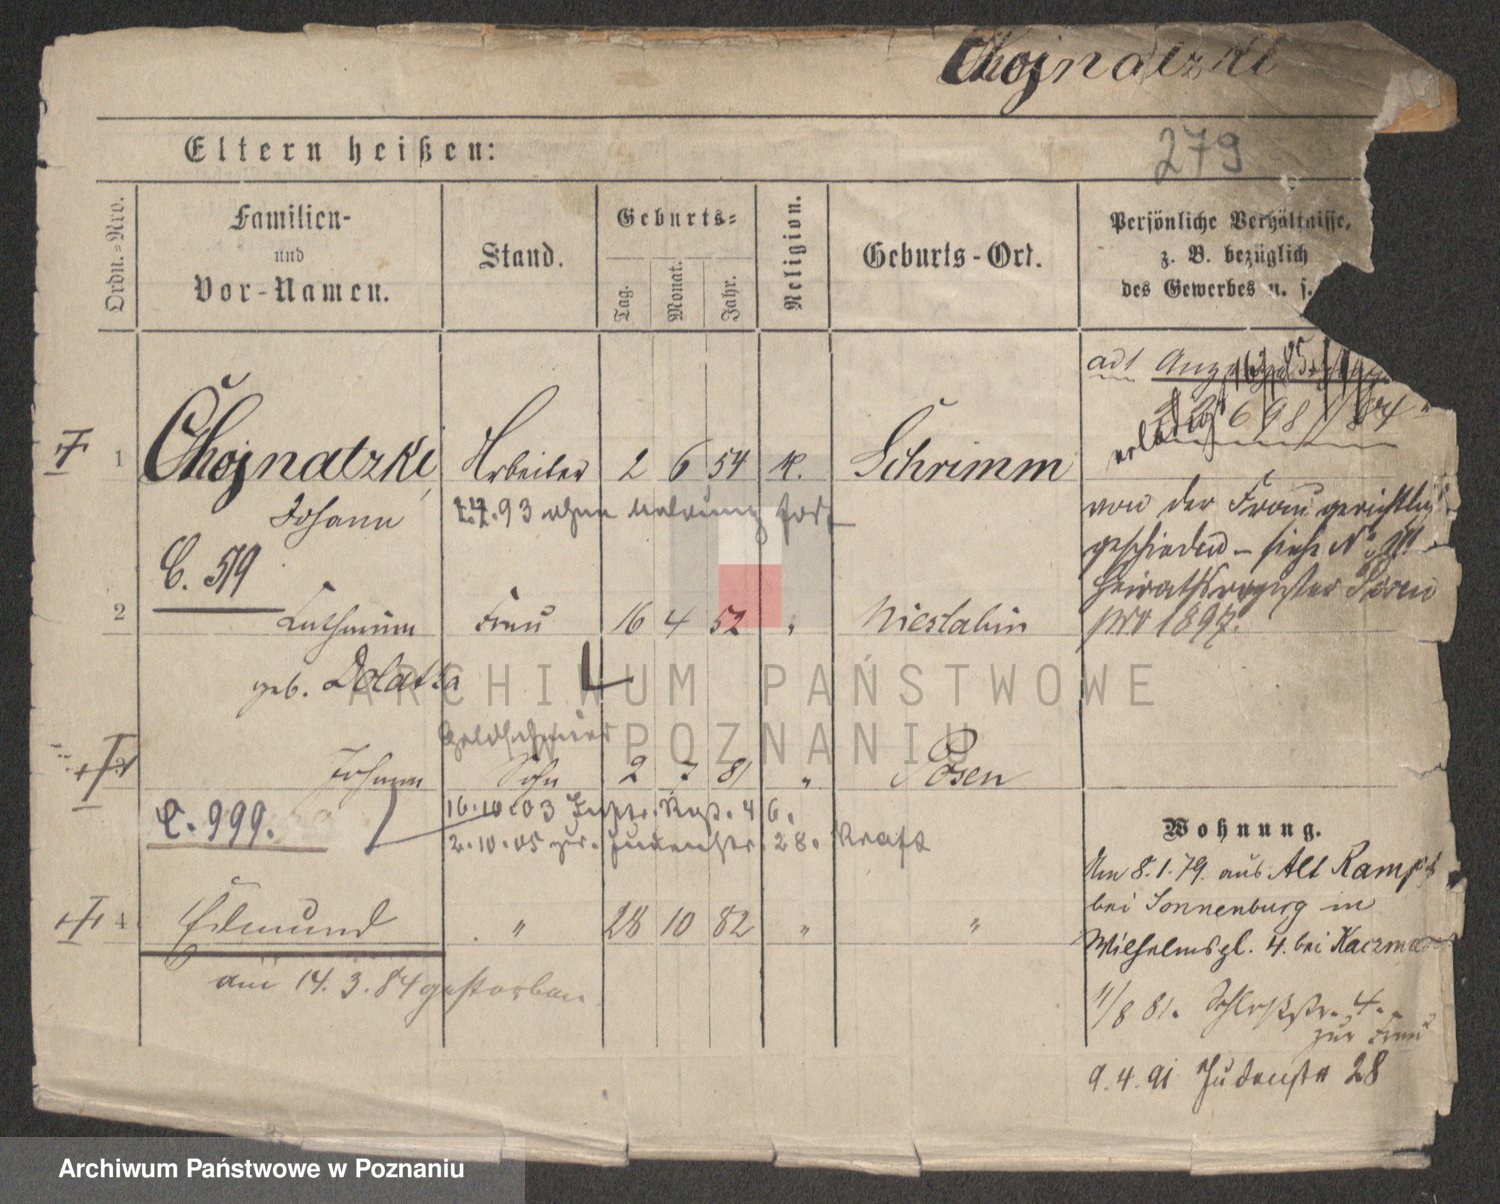 Chojnatzki
279
Eltern heißen:
Ordn.-Nro.
Familien-
und
Vor-Namen.
Stand.
Geburts-
Tag.
Monat.
Jahr.
Religion.
Geburts-Ort.
Persönliche Verhältnisse,
z. B. bezüglich
des Gewerbes u. s.
ad 1
698/84
erledigt
1 Chojnatzki, Arbeiter 2 6 54 k. Schrimm
Johann
93 ohne Meldung fort
C. 519
von der Frau gerichtlich
geschieden - siehe No
Heiratsregister Posen
pro 1897.
2 Frau 16 4 52 "
geb. Dolatka
Johann Sohn 2 7 81 " Posen
C. 999.
16.10.03 46.
2.10.05 zur. Judenstr. 28. Kraft
4 Edmund " 28 10 82 " "
am 14.3.84 gestorben
Wohnung.
Um 8.1.79. aus Alt
bei Sonnenburg in
Wilhelmspl. 4. bei
11/8 81. Schloßstr. 4.
zur Frau
9.4.91 Judenstr 28
ARCHIWUM PAŃSTWOWE
W POZNANIU
Archiwum Państwowe w Poznaniu